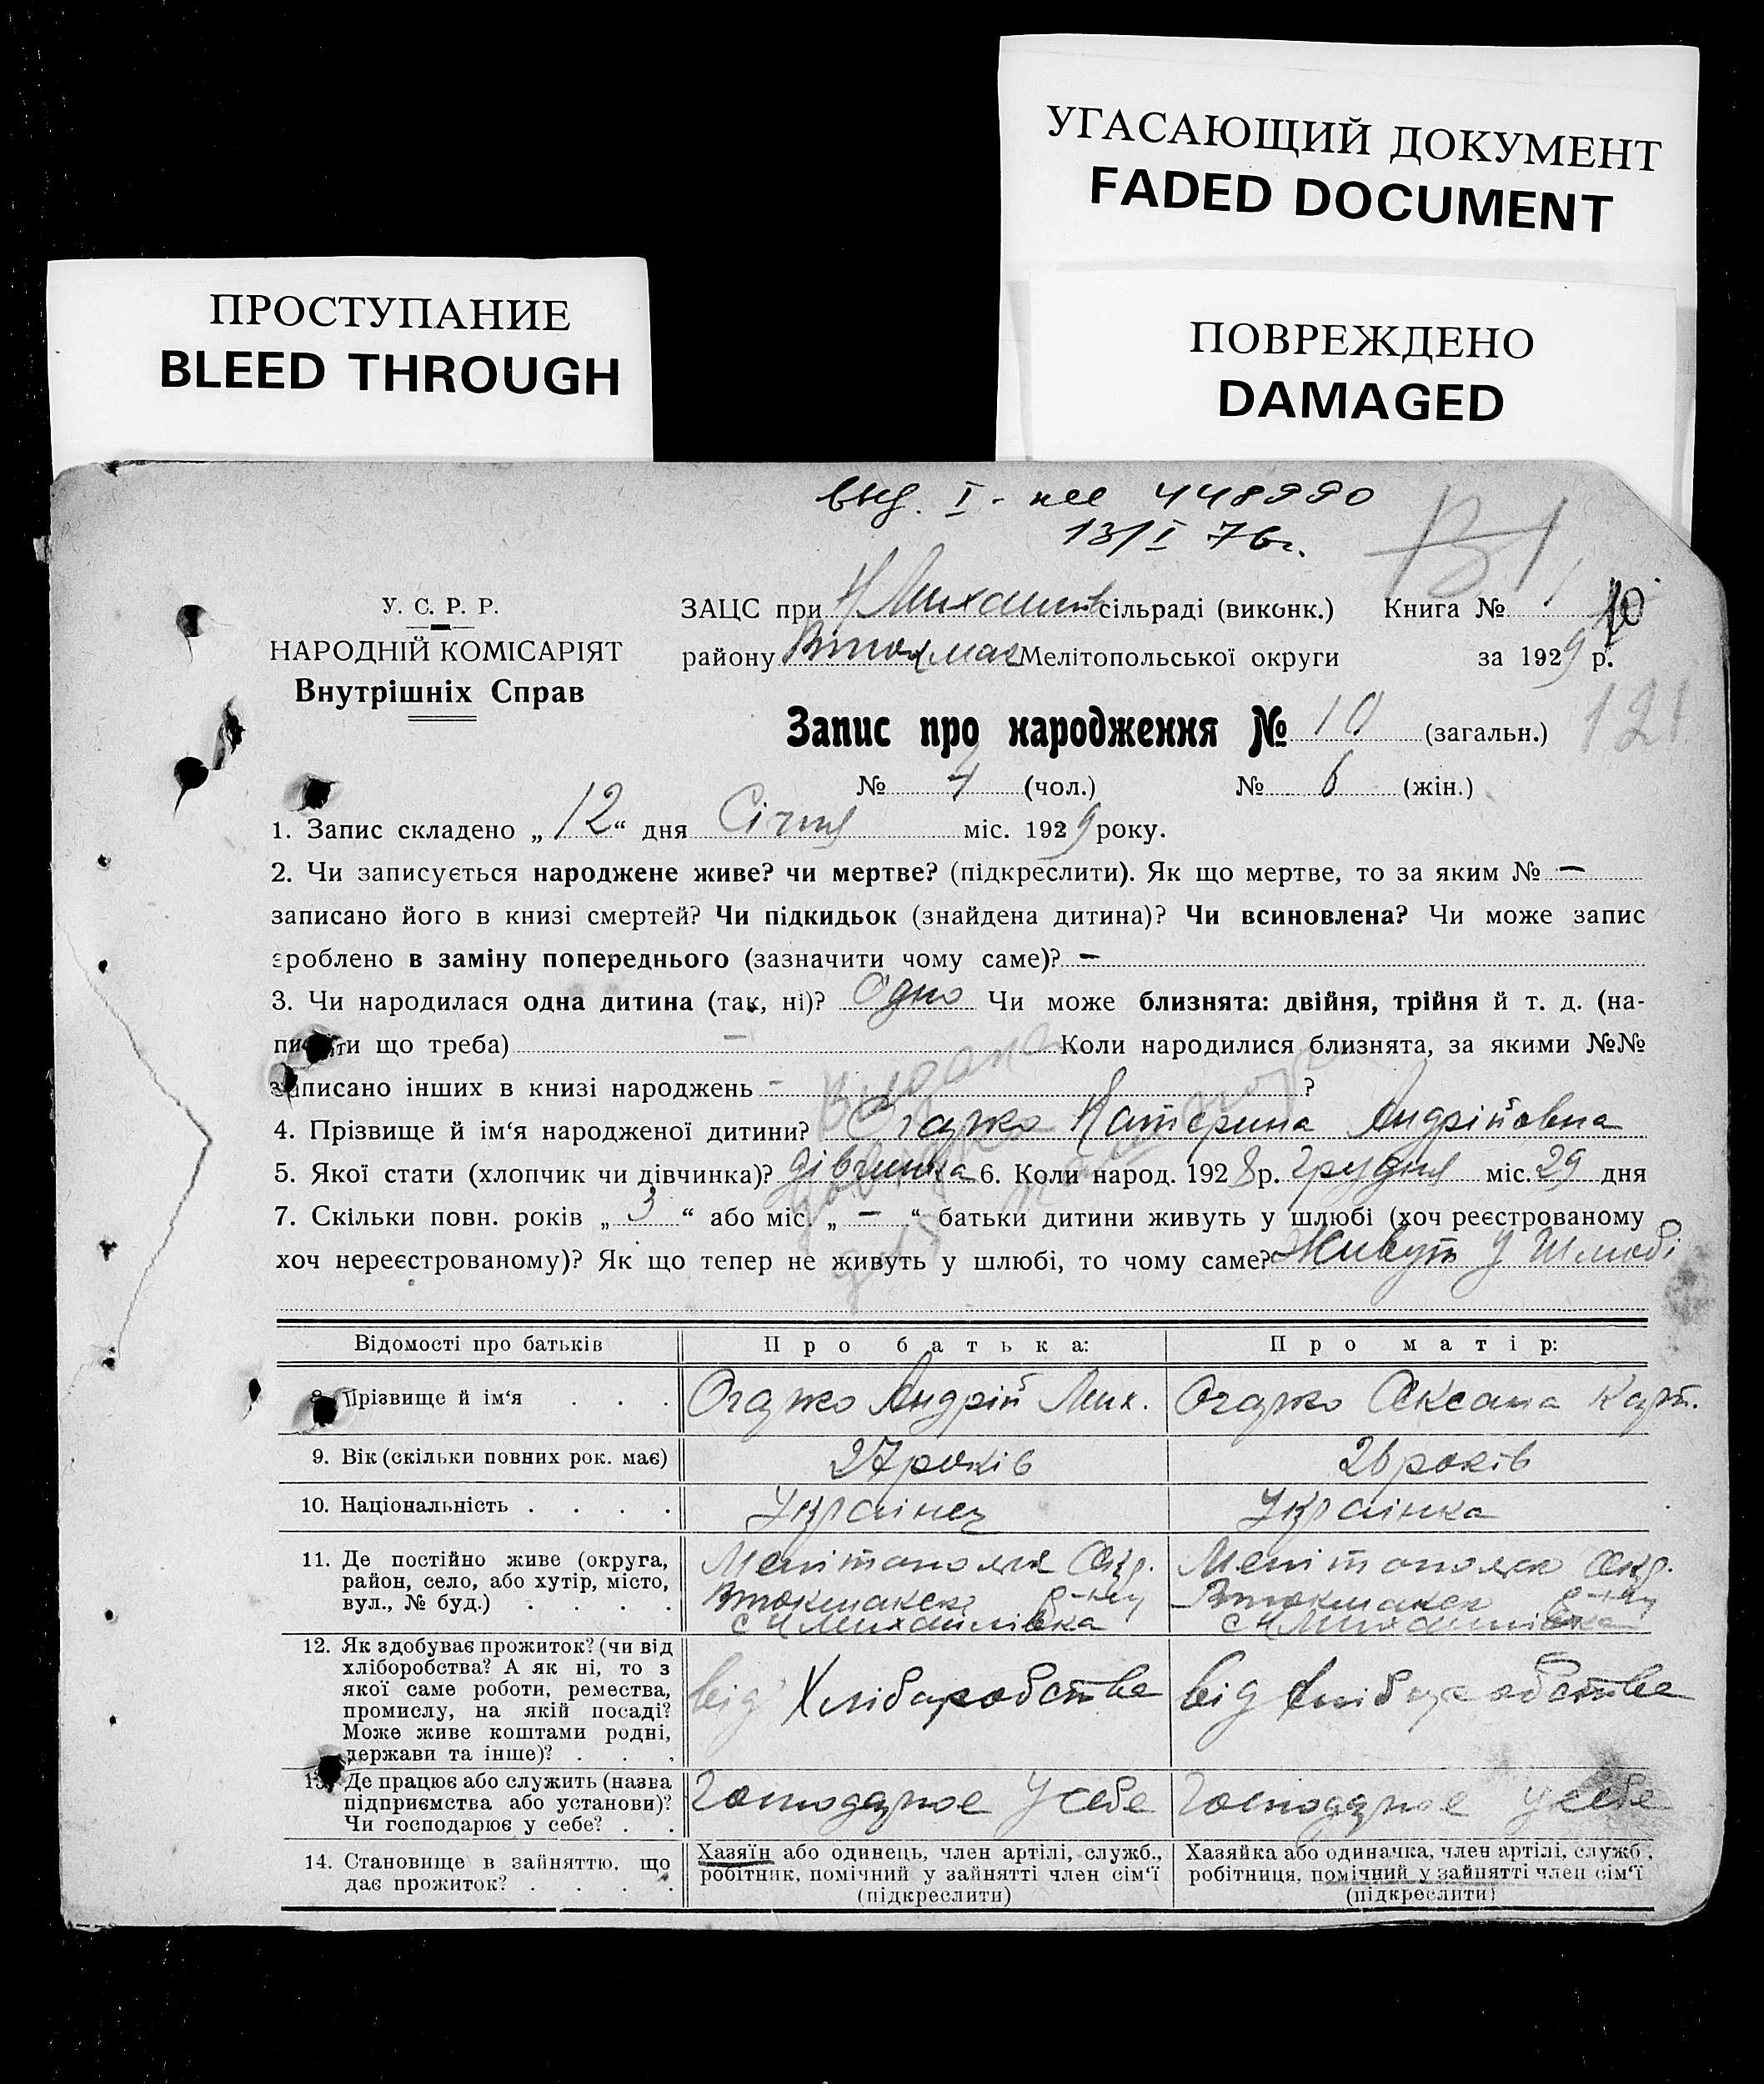 УГАСАЮЩИЙ ДОКУМЕНТ
FADED DOCUMENT
ПРОСТУПАНИЕ
BLEED THROUGH
ПОВРЕЖДЕНО
DAMAGED
выд. I - 448990
13/I 76г.
У. С. Р. Р.
НАРОДНІЙ КОМІСАРІЯТ
Внутрішніх Справ
ЗАЦС при Н Михайлів сільраді (виконк.) Книга № 1
10
району Втокмак Мелітопольської округи за 1929 р.
Запис про народження № 10 (загальн.)
121
№ 4 (чол.) № 6 (жін.)
1. Запис складено „12“ дня Січня міс. 1929 року.
2. Чи записується народжене живе? чи мертве? (підкреслити). Як що мертве, то за яким № —
записано його в книзі смертей? Чи підкидьок (знайдена дитина)? Чи всиновлена? Чи може запис
зроблено в заміну попереднього (зазначити чому саме)? —
3. Чи народилася одна дитина (так, ні)? Одно Чи може близнята: двійня, трійня й т. д. (на-
писати що треба) — Коли народилися близнята, за якими №№
записано інших в книзі народжень - ?
4. Прізвище й ім‘я народженої дитини? Катерина Андрійовна
5. Якої стати (хлопчик чи дівчинка)? дівчинка 6. Коли народ. 1928 р. Грудня міс. 29 дня
7. Скільки повн. років „3“ або міс. „—“ батьки дитини живуть у шлюбі (хоч реєстрованому
хоч нереєстрованому)? Як що тепер не живуть у шлюбі, то чому саме? Живут У Шлюбі
Відомості про батьків Про батька: Про матір:
8. Прізвище й ім‘я . . . Андрій Мих. Оксана
9. Вік (скільки повних рок. має) 27 років 26 років
10. Національність . . . . Українец Українка
11. Де постійно живе (округа,
район, село, або хутір, місто,
вул., № буд.) . . . .
Мелітопольск Окр.
Втокмакск р-ну
с Н Михайлівка
Мелітопольск Окр.
Втокмакск р-ну
с Н Михайлівка
12. Як здобуває прожиток? (чи від
хліборобства? А як ні, то з
якої саме роботи, ремества,
промислу, на якій посаді?
Може живе коштами родні,
держави та інше)? . . .
від Хліборобства
від Хліборобства
13. Де працює або служить (назва
підприємства або установи)?
Чи господарює у себе? . .
Господарює У себе
Господарює У себе
14. Становище в зайняттю, що
дає прожиток? . . . .
Хазяїн або одинець, член артілі, служб.,
робітник, помічний у зайнятті член сім‘ї
(підкреслити)
Хазяйка або одиначка, член артілі, служб.,
робітниця, помічний у зайнятті член сім‘ї
(підкреслити)